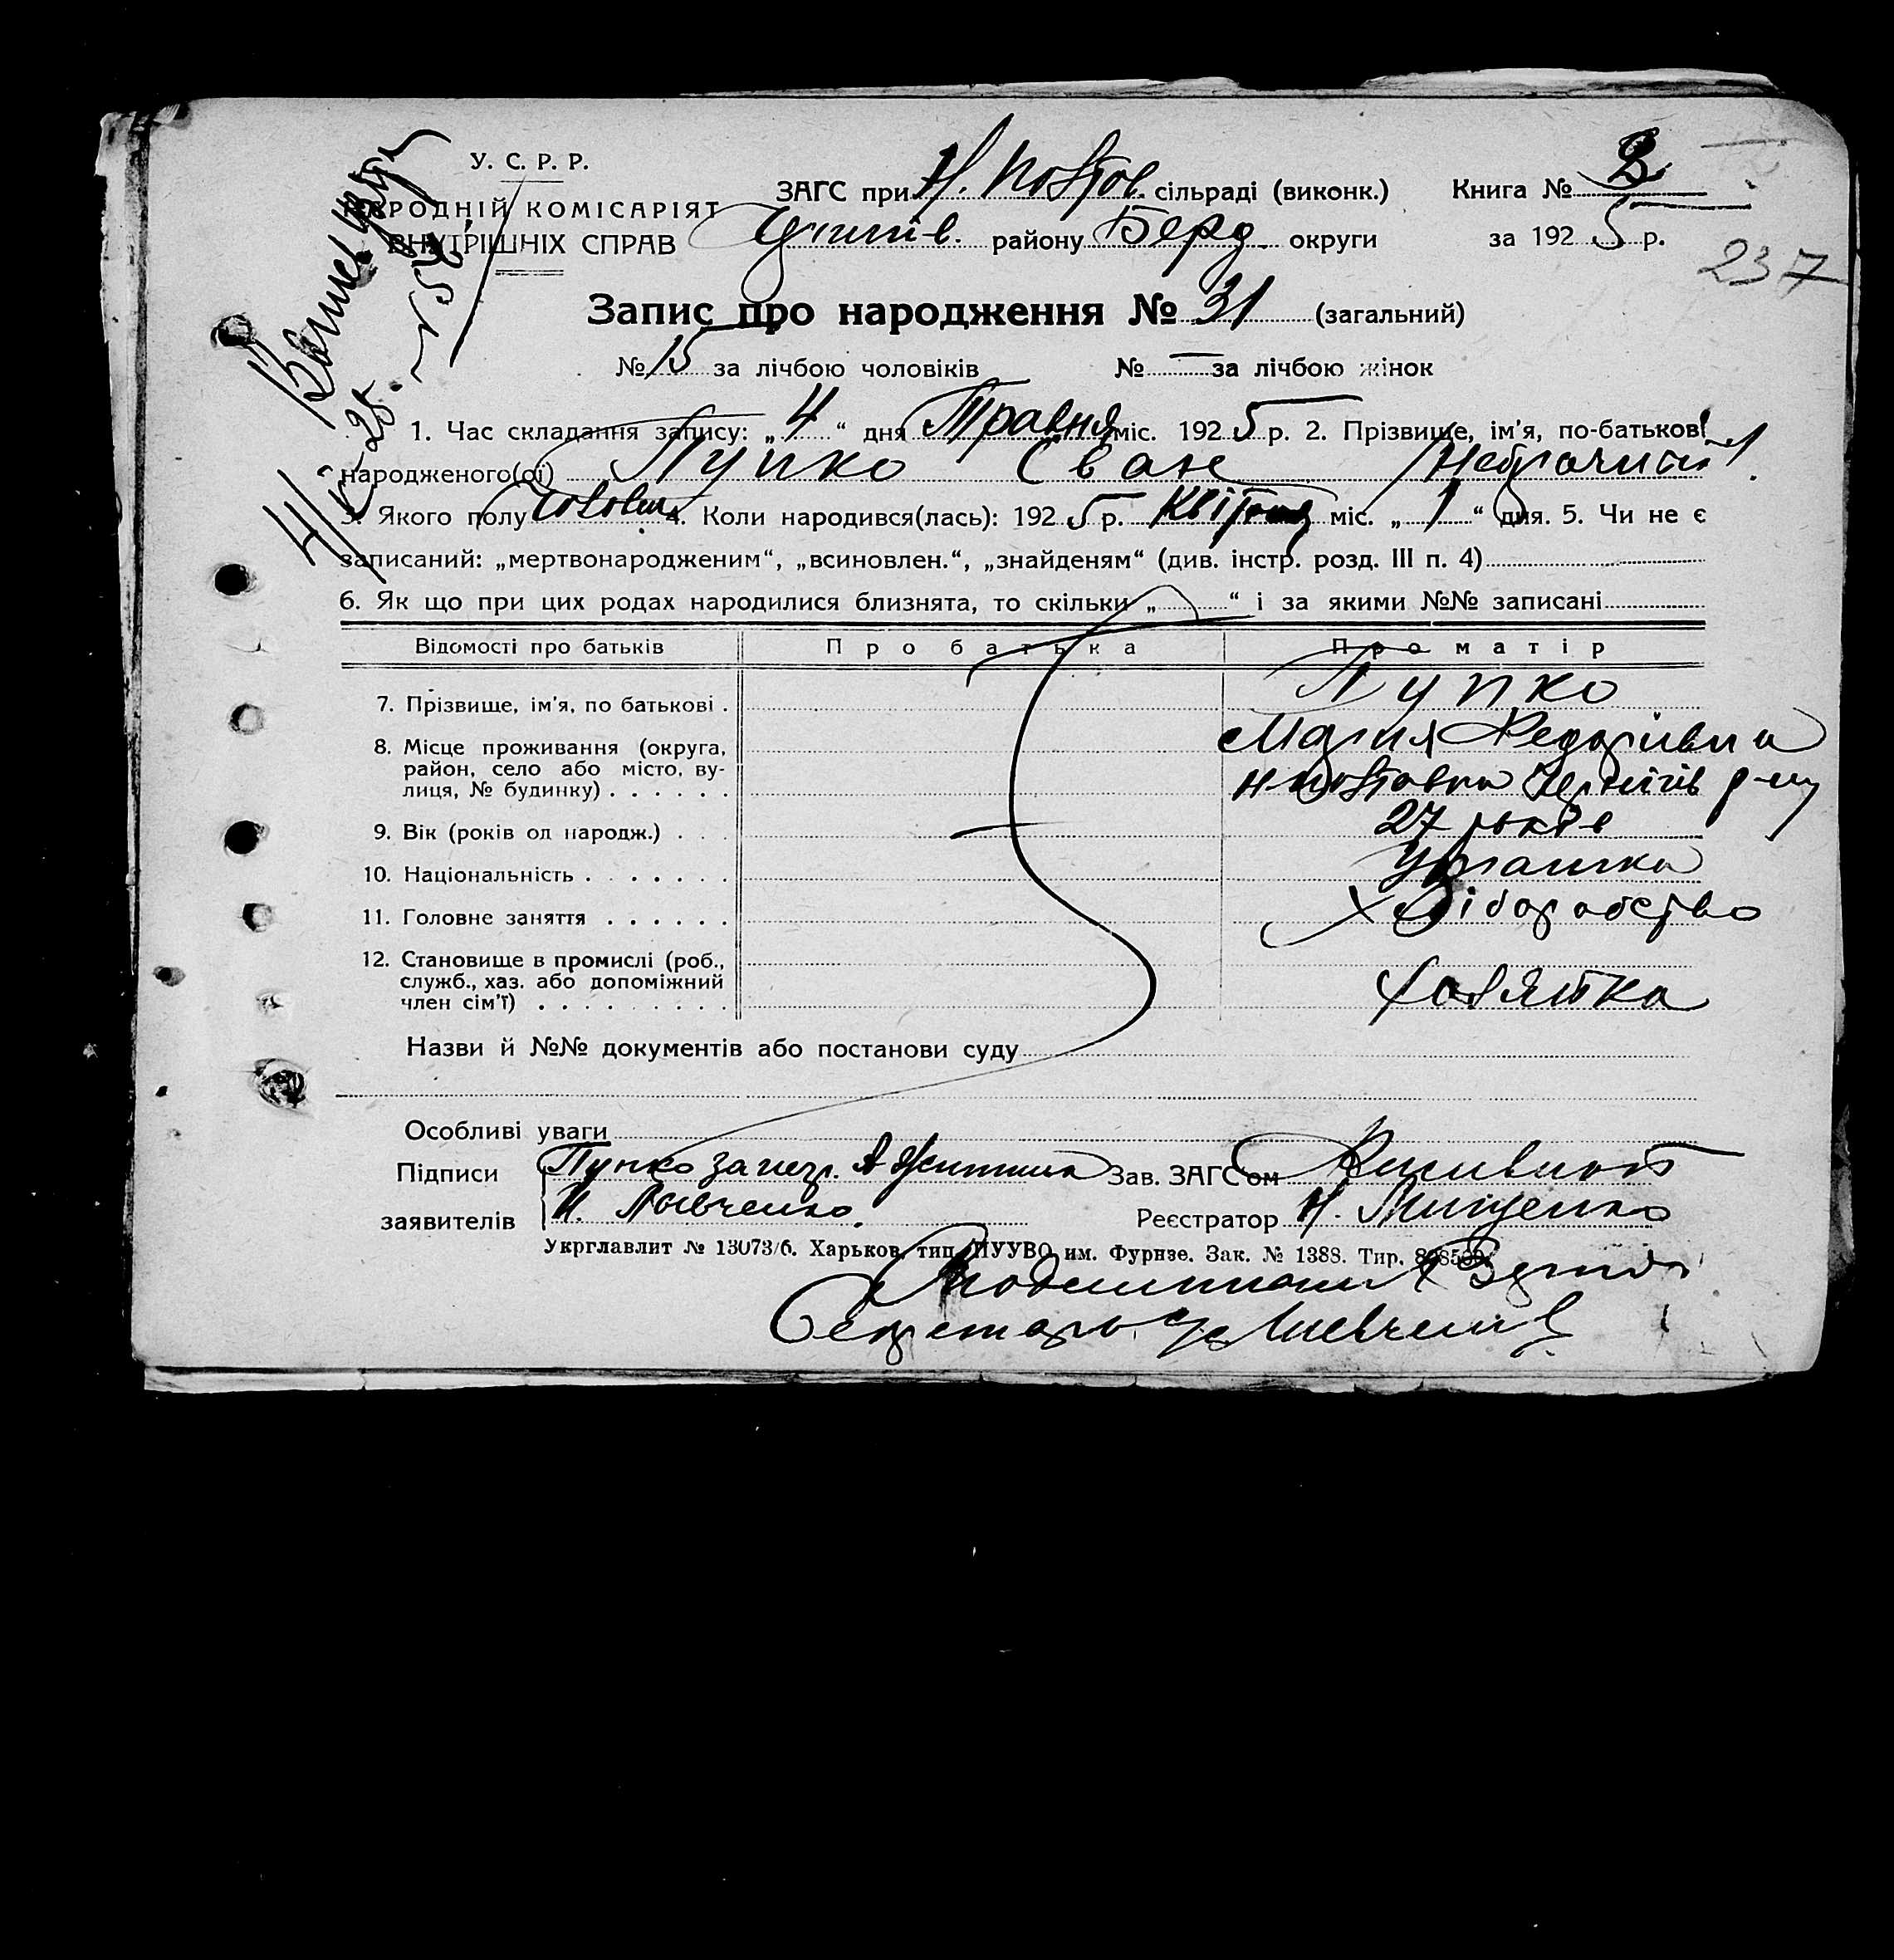 У. С. Р. Р.
НАРОДНІЙ КОМІСАРІЯТ
ВНУТРІШНІХ СПРАВ
ЗАГС при Н. Полтов. сільраді (виконк.)
району Берд. округи
Книга № 2
за 1925 р.
237
Запис про народження № 31 (загальний)
№ 15 за лічбою чоловіків № — за лічбою жінок
1. Час складання запису: „4“ дня Травня міс. 1925 р. 2. Прізвище, ім'я, по-батькові
народженого(ої) Пупко Іван
3. Якого полу чоловіч. 4. Коли народився(лась): 1925 р. Квітня міс. „1“ дня. 5. Чи не є
записаний: „мертвонародженим“, „всиновлен.“, „знайденям“ (див. інстр. розд. III п. 4)
6. Як що при цих родах народилися близнята, то скільки „ “ і за якими №№ записані
Відомості про батьків Про батька Про матір
7. Прізвище, ім'я, по батькові . Пупко
Марія Федорівна
8. Місце проживання (округа,
район, село або місто, ву-
лиця, № будинку) . . . . . . Н Полтавка Чернігів р-ну
9. Вік (років од народж.) . . . 27 років
10. Національність . . . . . . . Українка
11. Головне заняття . . . . . . Хліборобство
12. Становище в промислі (роб.,
служб., хаз. або допоміжний
член сім'ї) . . . . . . . . . Хазяйка
Назви й №№ документів або постанови суду
Особливі уваги
Підписи Пупко за негр. А Житник Зав. ЗАГС'ом
заявителів Реєстратор Н. Мищенко
Укрглавлит № 13073/б. Харьков, тип. ПУУВО им. Фурнзе. Зак. № 1388. Тир.
Секретарь